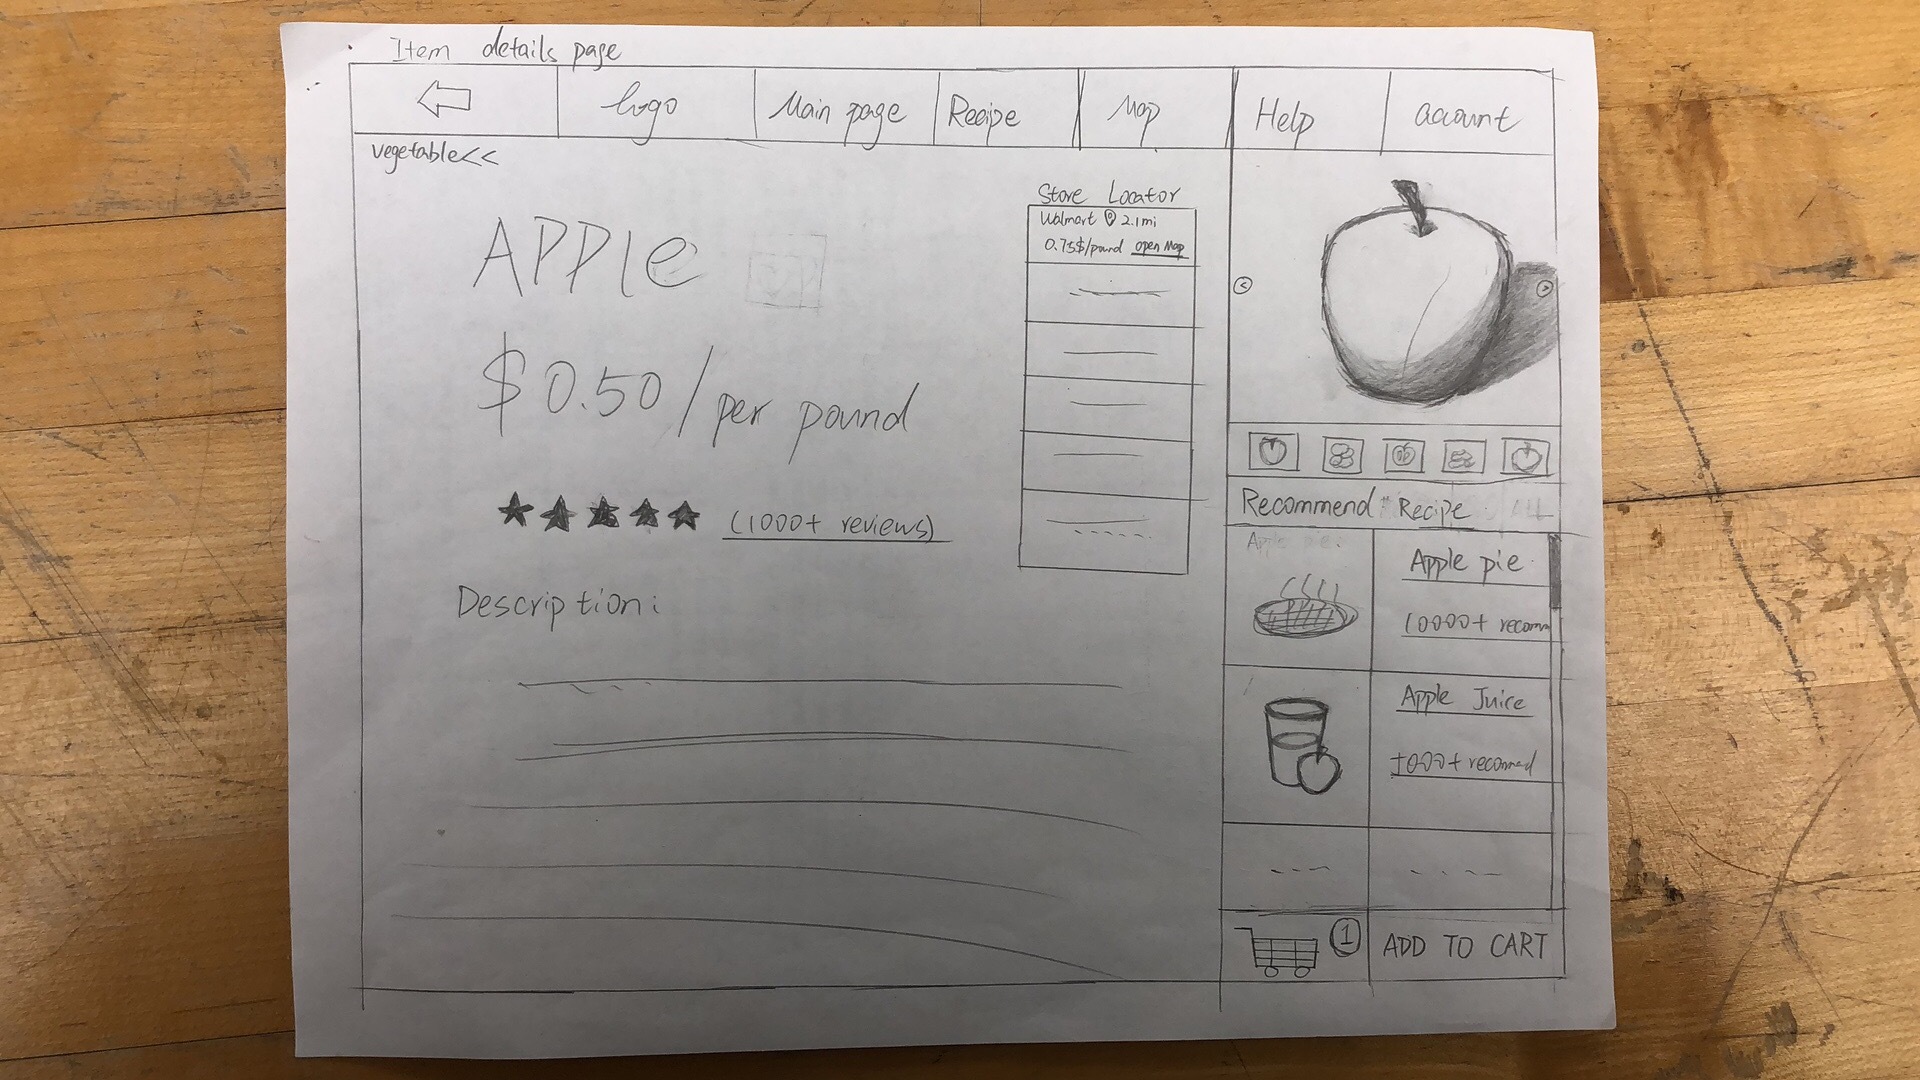 Item details page
logo
Main page
Recipe
Map
Help
account
vegetable<<
APPle
$0.50/per pound
(1000+ reviews)
Description:
Store Locator
Walmart 2.1mi
0.75$/pound open Map
Recommend Recipe
Apple pie
Apple pie
10000+ recomm
Apple Juice
1000+ recommed
1
ADD TO CART